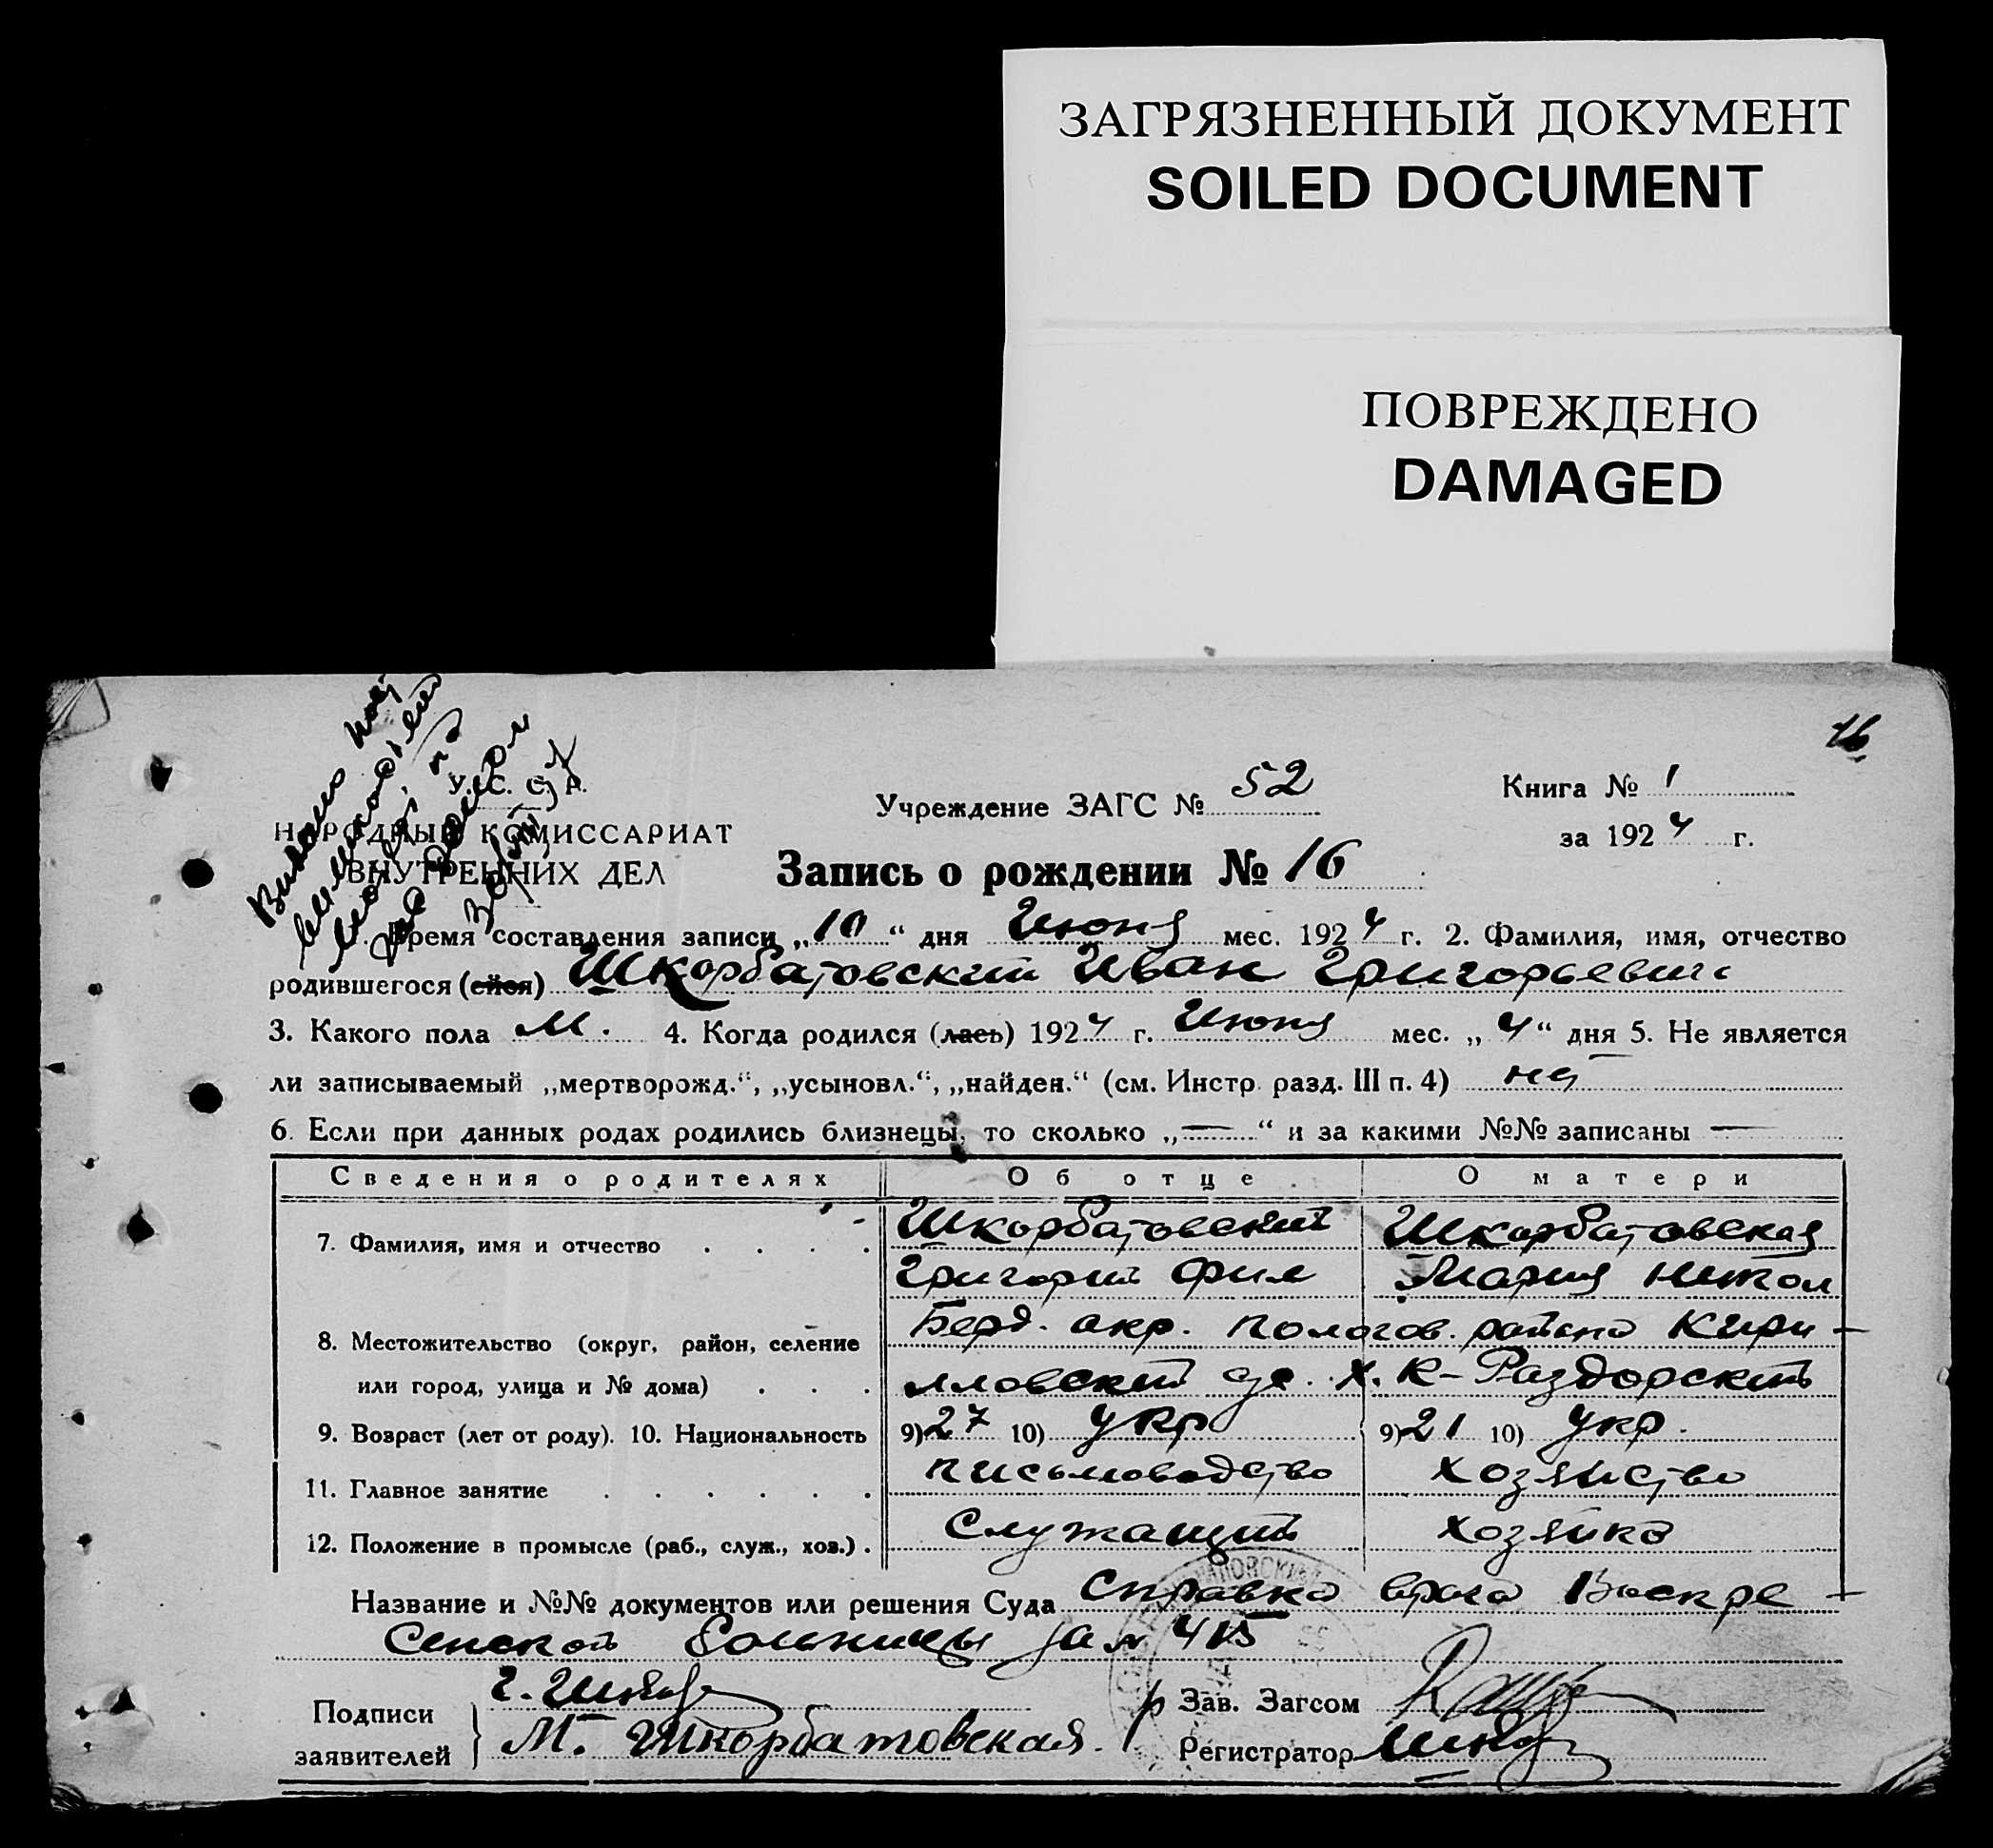 ЗАГРЯЗНЕННЫЙ ДОКУМЕНТ
SOILED DOCUMENT
ПОВРЕЖДЕНО
DAMAGED
16
У. С. С. Р.
НАРОДНЫЙ КОМИССАРИАТ
ВНУТРЕННИХ ДЕЛ
Учреждение ЗАГС № 52
Книга № 1
за 1924 г.
Запись о рождении № 16
Время составления записи „10“ дня Июня мес. 1924 г. 2. Фамилия, имя, отчество
родившегося (ейся) Шкорбатовский Иван Григорьевич
3. Какого пола М. 4. Когда родился (лась) 1924 г. Июня мес. „4“ дня 5. Не является
ли записываемый „мертворожд.“, „усыновл.“, „найден.“ (см. Инстр. разд. III п. 4)
6. Если при данных родах родились близнецы, то сколько „—“ и за какими №№ записаны —
Сведения о родителях Об отце О матери
7. Фамилия, имя и отчество . . . . Шкорбатовский Шкорбатовская
Григорий Фил Мария Никол
8. Местожительство (округ, район, селение Берд. окр. Пологов. района Кири-
или город, улица и № дома) . . . лловский с/с. х. К-Раздорский
9. Возраст (лет от роду). 10. Национальность 9) 27 10) укр 9) 21 10) укр.
11. Главное занятие . . . . . . письмоводство хозяйство
12. Положение в промысле (раб., служ., хоз.) . Служащий хозяйка
Название и №№ документов или решения Суда Справка врача Воскре-
сенской больницы за № 415
Подписи
заявителей
М. Шкорбатовская.
Зав. Загсом
Регистратор